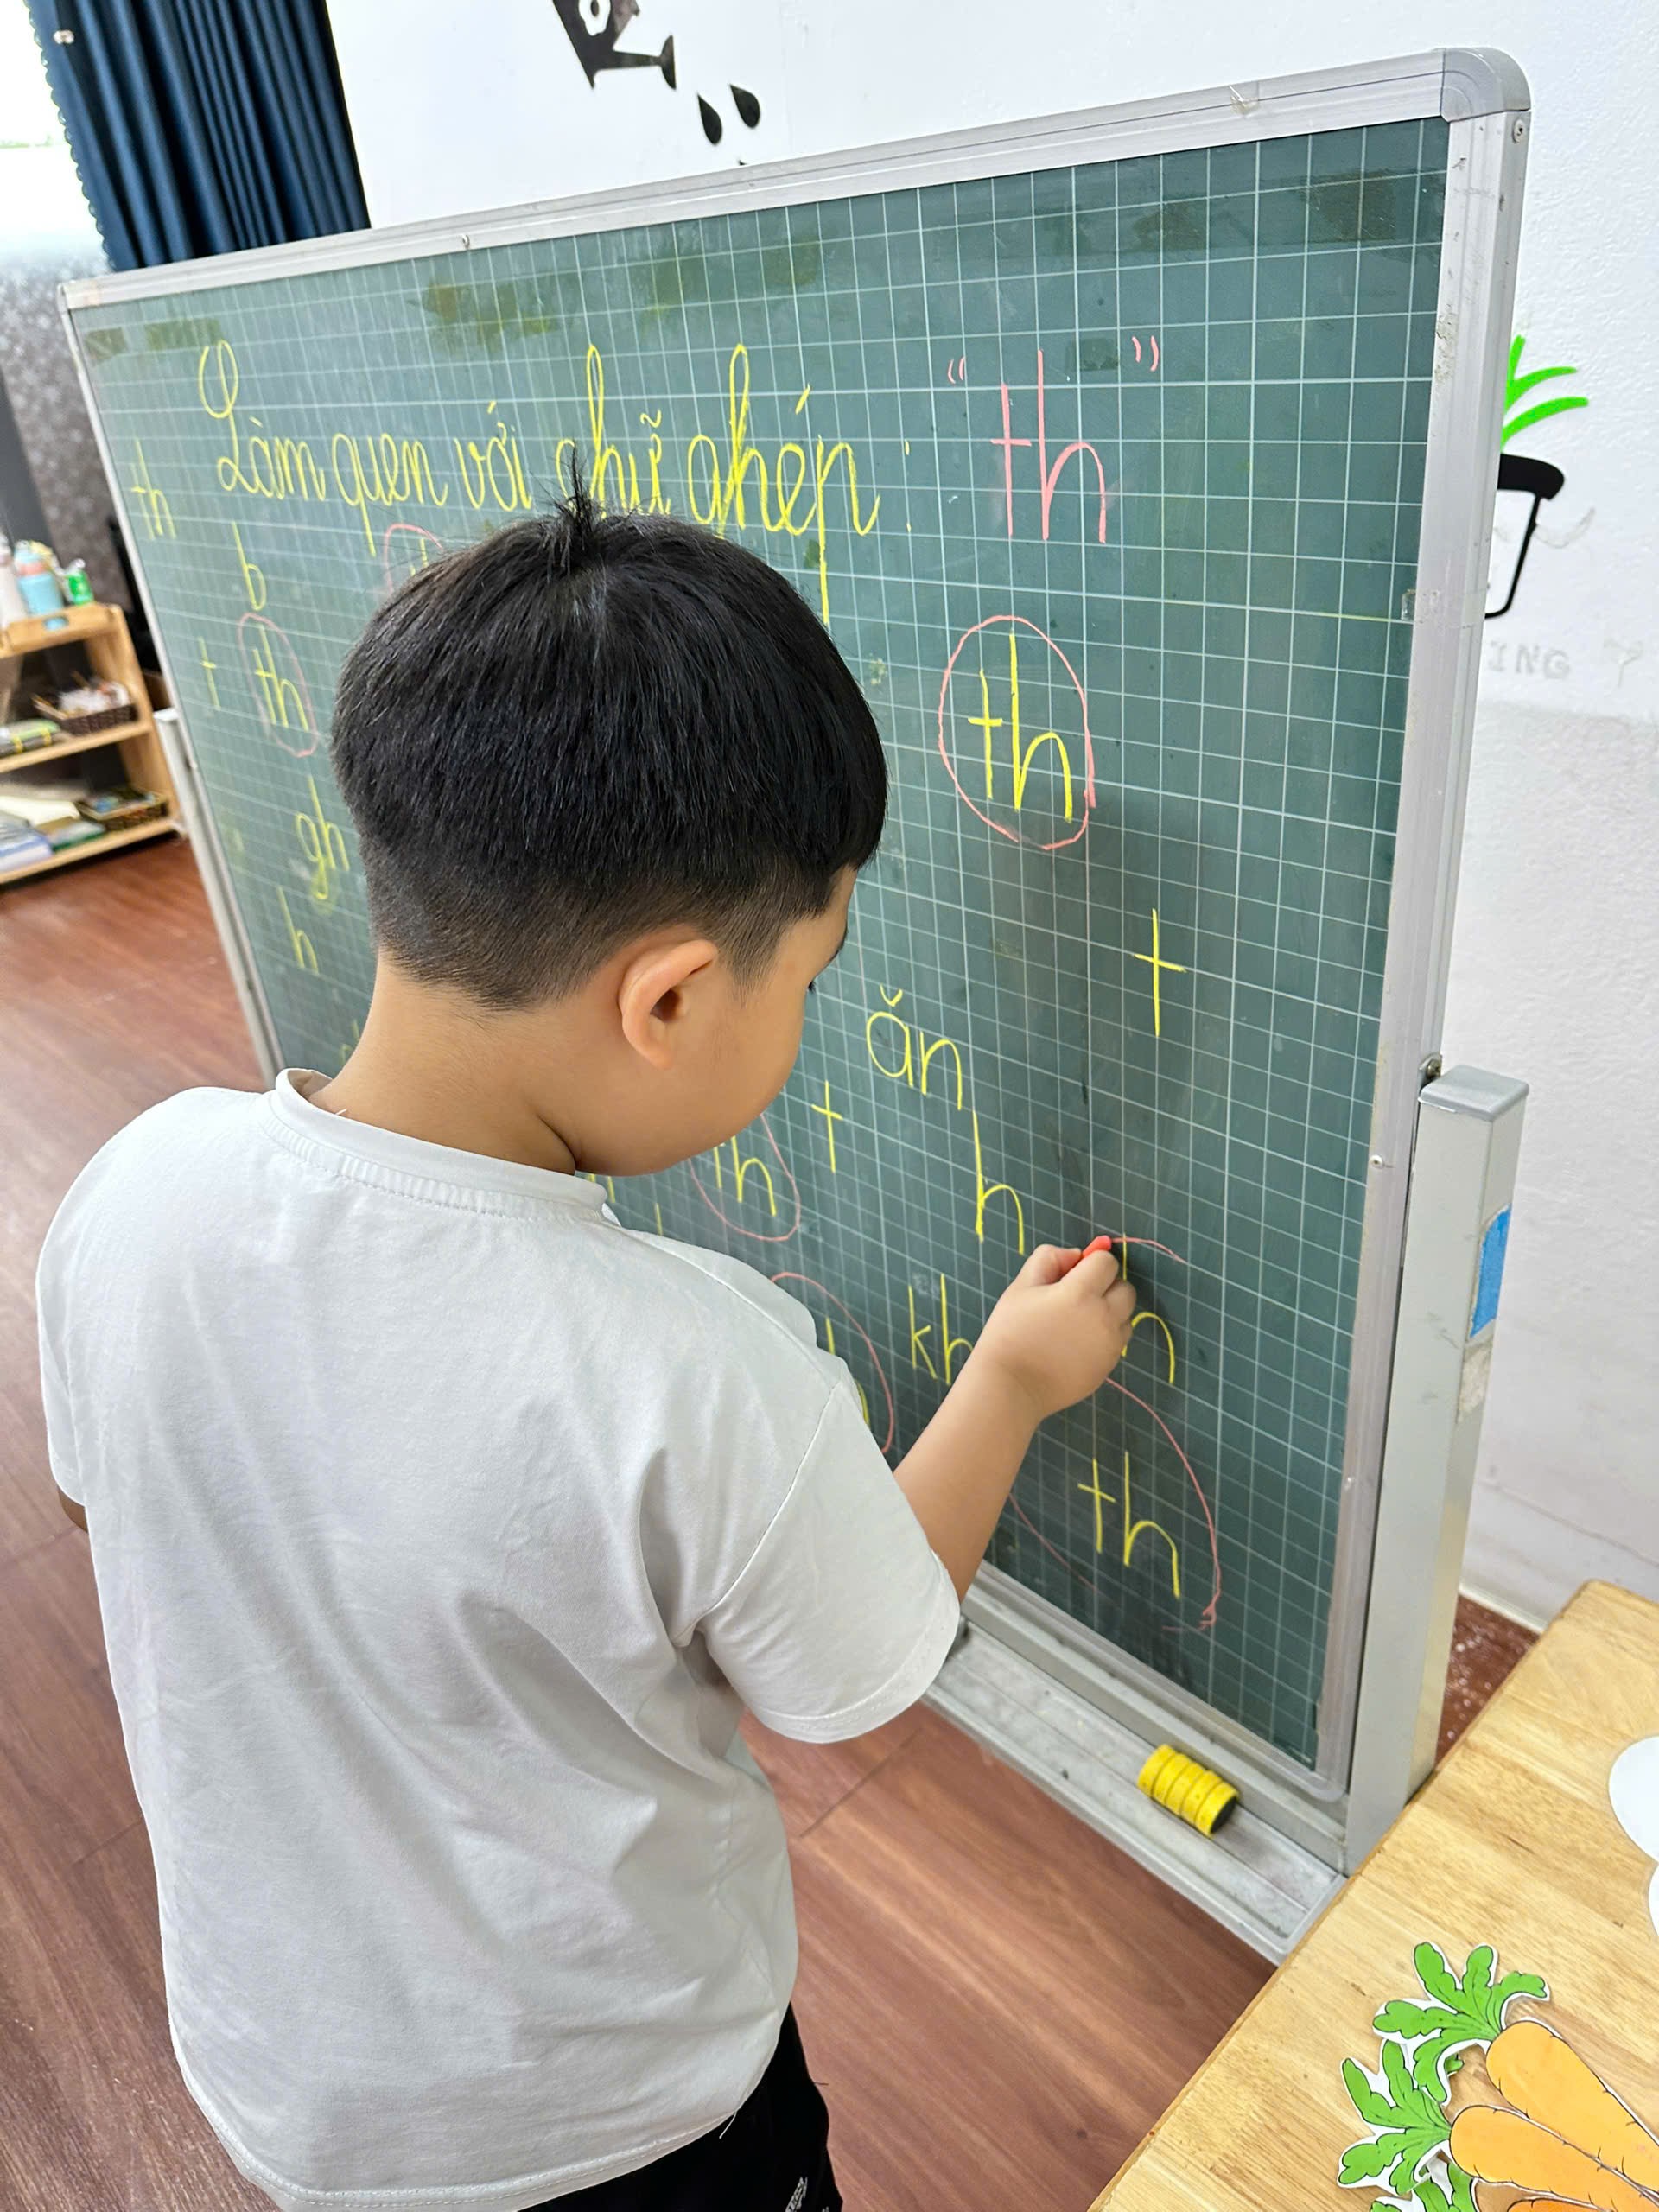 Làm quen với chữ ghép : "th"
th
b
t th th
gh
h t
ăn
h t h
kh
th
ING